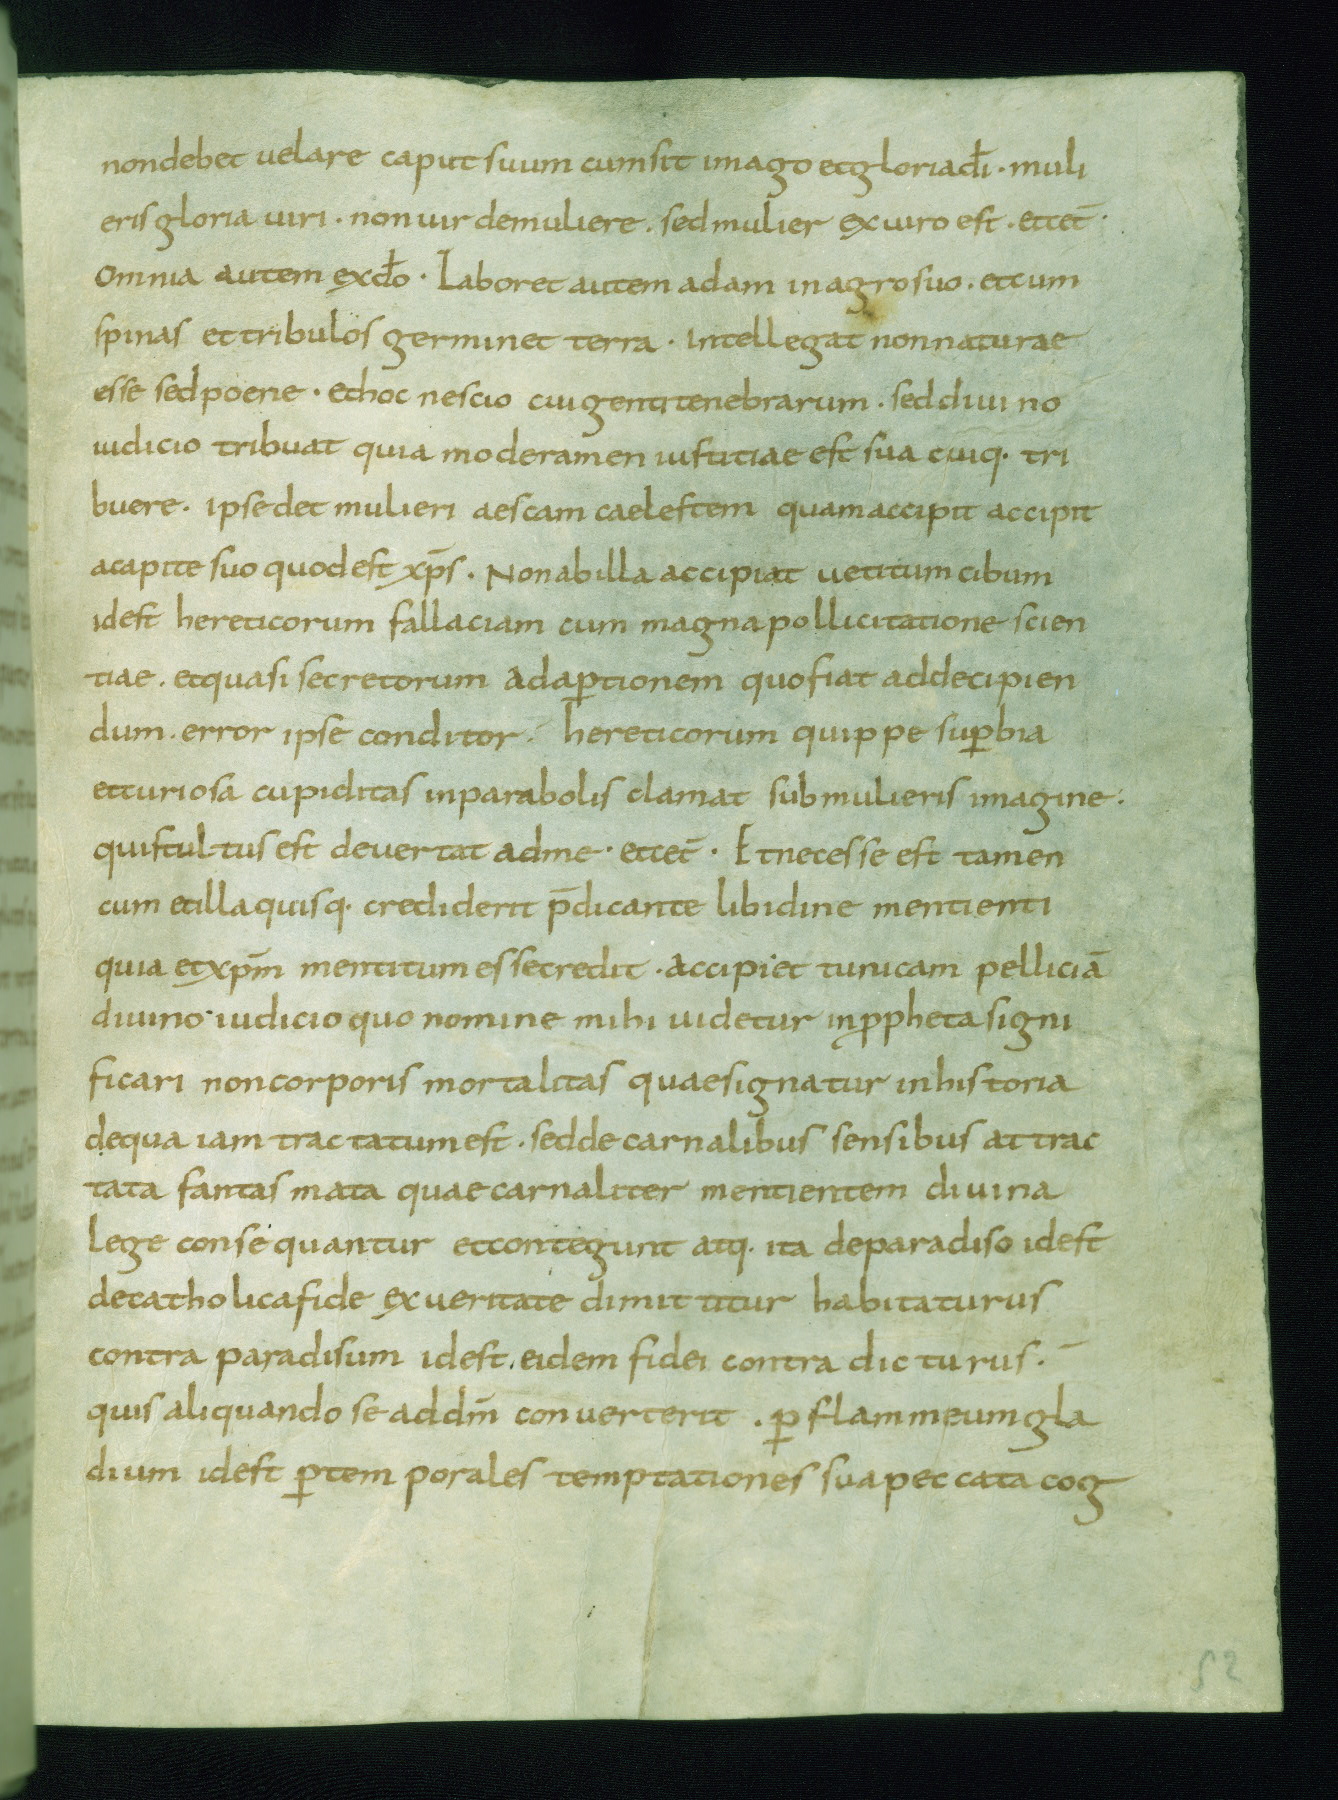 nondebet uelare caput suum cumsit imago etgloriad̄i · muli
eris gloria uiri · nonuir demuliere . sedmulier exuiro est · etcet̄ ·
Omnia autem exd̄o · Laboret autem adam inagrosuo . etcum
spinas et tribulos germinet terra · intellegat nonnaturae
esse sedpoene · ethoc nescio cuigentitenebrarum . seddiuino
iudicio tribuat quia moderamen iustitiae est sua cuiq· tri
buere . ipsedet mulieri aescam caelestem quamaccipit accipit
acapite suo quodest xp̄s . Nonabilla accipiat uetitum cibum
idest hereticorum fallaciam cum magnapollicitatione scien
tiae . etquasi secretorum adap̱tionem quofiat addecipien
dum . error ipse conditor . hereticorum quippe sup̱bia
etcuriosa cupiditas inparabolis clamat submulieris imagine .
quistultus est deuertat adme · etcet̄ · Etnecesse est tamen
cum etillaquisq· crediderit p̄dicante libidine mentienti
quia etxp̄m mentitum essecredit · accipiet tunicam pelliciā
diuino iudicio quo nomine mihi uidetur inp̱pheta signi
ficari noncorporis mortalitas quaesignatur inhistoria
dequa iam tractatumest . sedde carnalibus sensibus attrac
tata fantasmata quaecarnaliter mentientem diuina
lege consequantur etcontegunt atq· ita deparadiso idest
decatholicafide exueritate dimittitur habitaturus
contra paradisum idest . eidem fidei contra dicturus .
quis aliquando se add̄m conuerterit . p̱ flammeumgla
dium idest p̱temporales temptationes suapeccata cog
52